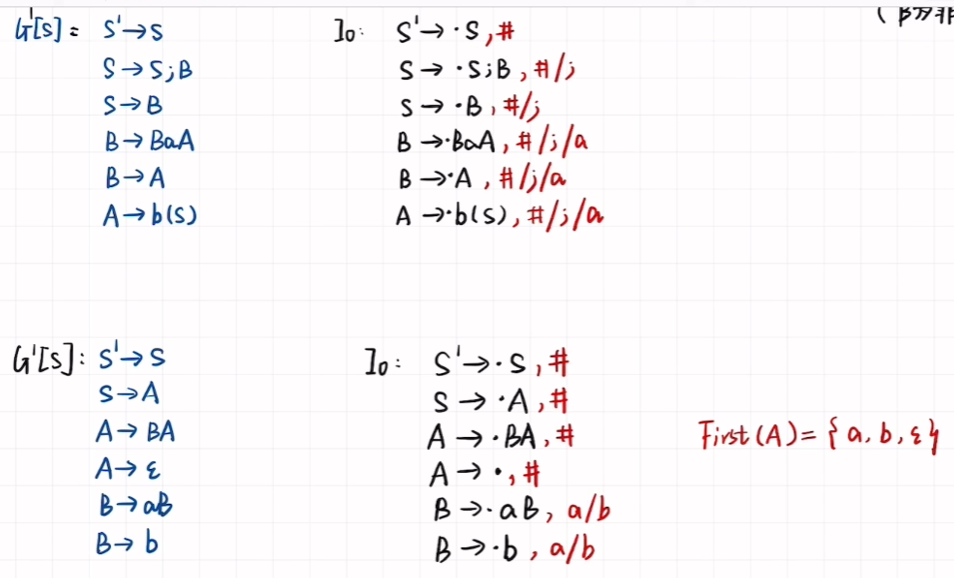 ( β为非
G'[S]: S'→S
S→S;B
S→B
B→BaA
B→A
A→b(S)
I₀: S'→·S, #
S→·S;B, #/;
S→·B, #/;
B→·BaA, #/;/a
B→·A, #/;/a
A→·b(S), #/;/a
G'[S]: S'→S
S→A
A→BA
A→ε
B→aB
B→b
I₀: S'→·S, #
S→·A, #
A→·BA, #
A→·, #
B→·aB, a/b
B→·b, a/b
First(A)={a, b, ε}